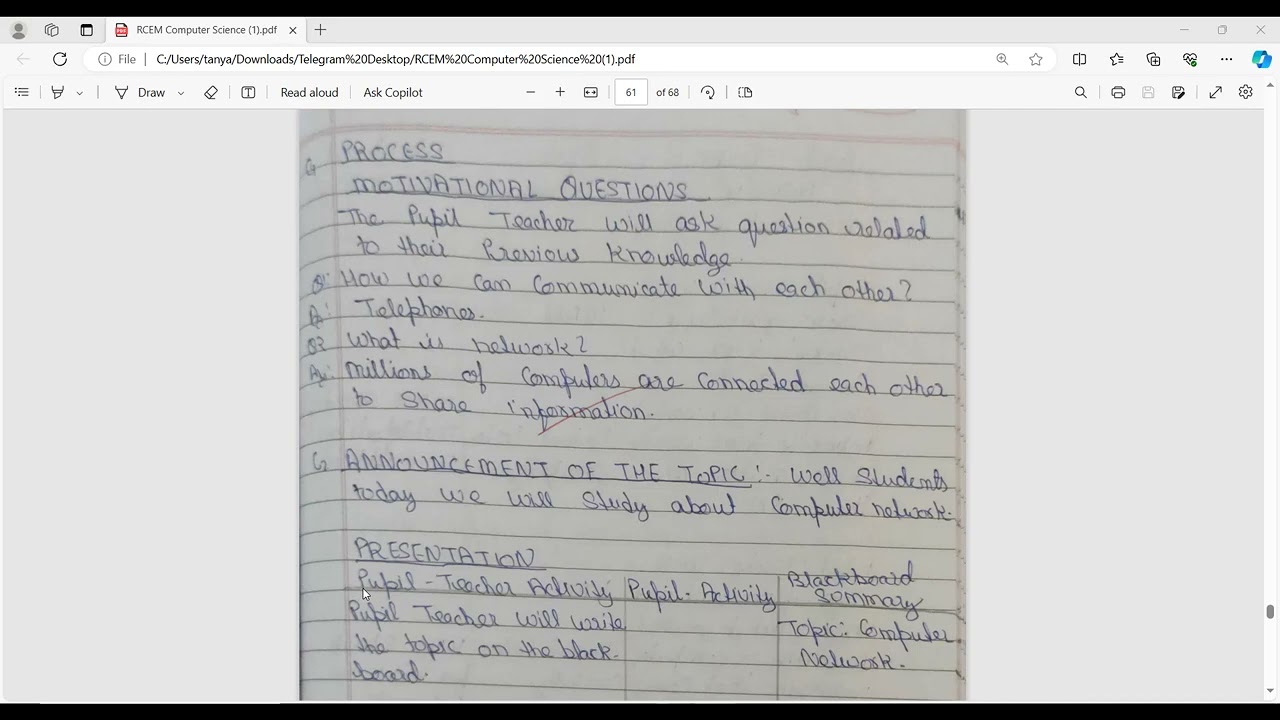 RCEM Computer Science (1).pdf
File C:/Users/tanya/Downloads/Telegram%20Desktop/RCEM%20Computer%20Science%20(1).pdf
Draw Read aloud Ask Copilot 61 of 68
PROCESS
MOTIVATIONAL QUESTIONS
The Pupil Teacher will ask question related
to their Previow Knowledge.
Q1: How we can Communicate with each other?
A: Telephones.
Q2 What is network?
A: Millions of Computers are Connected each other
to Share information.
ANNOUNCEMENT OF THE TOPIC :- Well Students
today we will Study about Computer network.
PRESENTATION
Pupil-Teacher Activity Pupil-Activity Blackboard
Summary
Pupil Teacher will write Topic: Computer
the topic on the black- Network.
board.